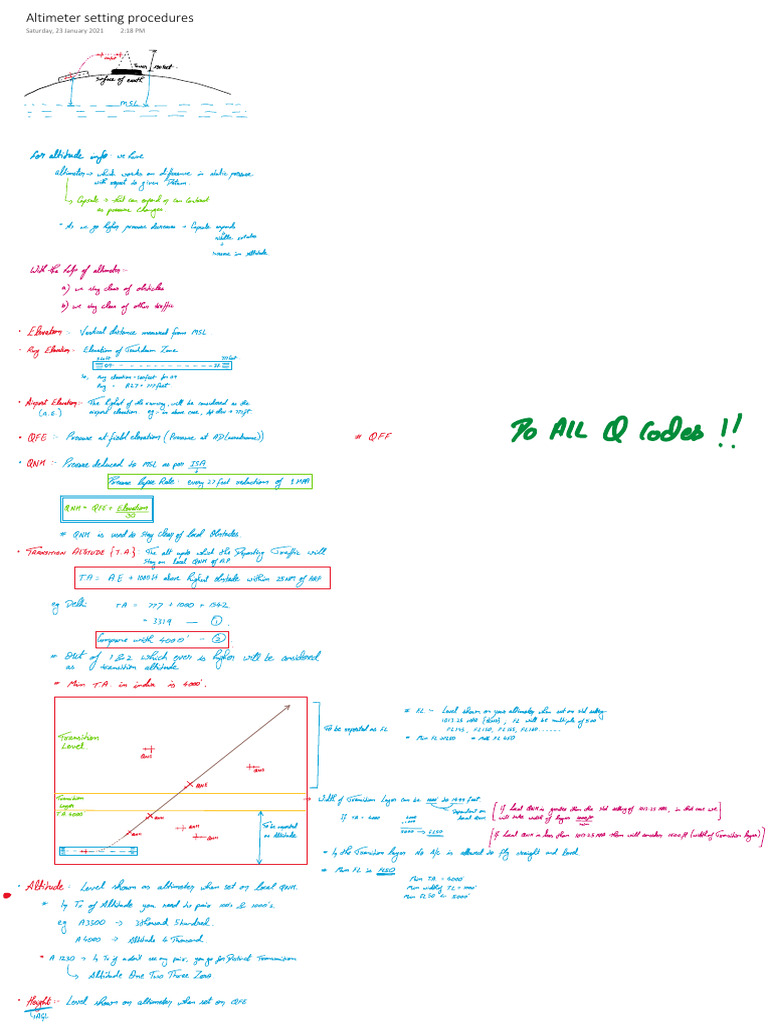 Altimeter setting procedures
Saturday, 23 January 2021 2:18 PM
surface of earth
MSL
For altitude info:- we have
altimeter which works on difference in static pressure
with respect to given Datum.
Capsule → that can expand or can contract
as pressure changes
- As we go higher pressure decreases → Capsule expands
increase in Altitude
With the help of altimeter:-
a) we stay clear of obstacles
b) we stay clear of other traffic
• Elevation:- Vertical distance measured from MSL
• Rwy Elevation:- Elevation of Touchdown Zone
777feet
09 27
So, Rwy elevation = for 09
Rwy = R27 = 777feet
• Airport Elevation:- The highest of the runway, will be considered as the
(A.E.) airport elevation eg:- in above case, Ap elev = 777ft.
• QFE:- Pressure at field elevation (Pressure at AD (aerodrome))
* QFF
To ALL Q Codes !!
• QNH:- Pressure deduced to MSL as per ISA
Pressure lapse Rate: every 27 feet reductions of 1 MPA
QNH = QFE + Elevation/30
* QNH is used to stay clear of local obstacles.
• TRANSITION ALTITUDE {T.A} The alt upto which the Departing Traffic will
stay on local QNH of A.P
TA = AE + 1000 ft above highest obstacle within 25 NM of ARP
eg Delhi TA = 777 + 1000 + 1542
= 3319 — ①
Compare with 4000' — ②
* Out of 1 & 2 which ever is higher will be considered
as transition altitude
* Min T.A. in india is 4000'.
Transition
Level
QNE
QNE
QNE
Transition
Layer
T.A 4000
QNH
QNH
QNH
QNH
To be reported as FL
To be reported
as Altitude
* FL - Level shown on your altimeter when set on std setting
1013.25 MPA (QNE), FL will be multiple of 500
= Min FL
→ Width of Transition Layer can be 1000 to 1499 feet
dependent on
local QNH
If TA = 4000
[If local QNH is greater than the std setting of 1013.25 MPA, in that case we
will take width of layer 1000ft]
[If local QNH is less than 1013.25 MPA then will consider 1500ft (width of Transition layer)]
5000 → FL50
* In the Transition layer no A/c is allowed to fly straight and level
* Min FL is FL50
Min TA = 4000'
Min width of TL = 1000'
Min FL50 is 5000'
• Altitude: Level shown on altimeter when set on local QNH.
* In Tx of Altitude you need to pair 100's & 1000's.
eg A3500 → 3 thousand 5 hundred.
A4000 → Altitude 4 Thousand.
* A 1230 → In Tx if u don't see any pair, you go for Distinct Transmission
Altitude One Two Three Zero
• Height:- Level shown on altimeter when set on QFE
AGL